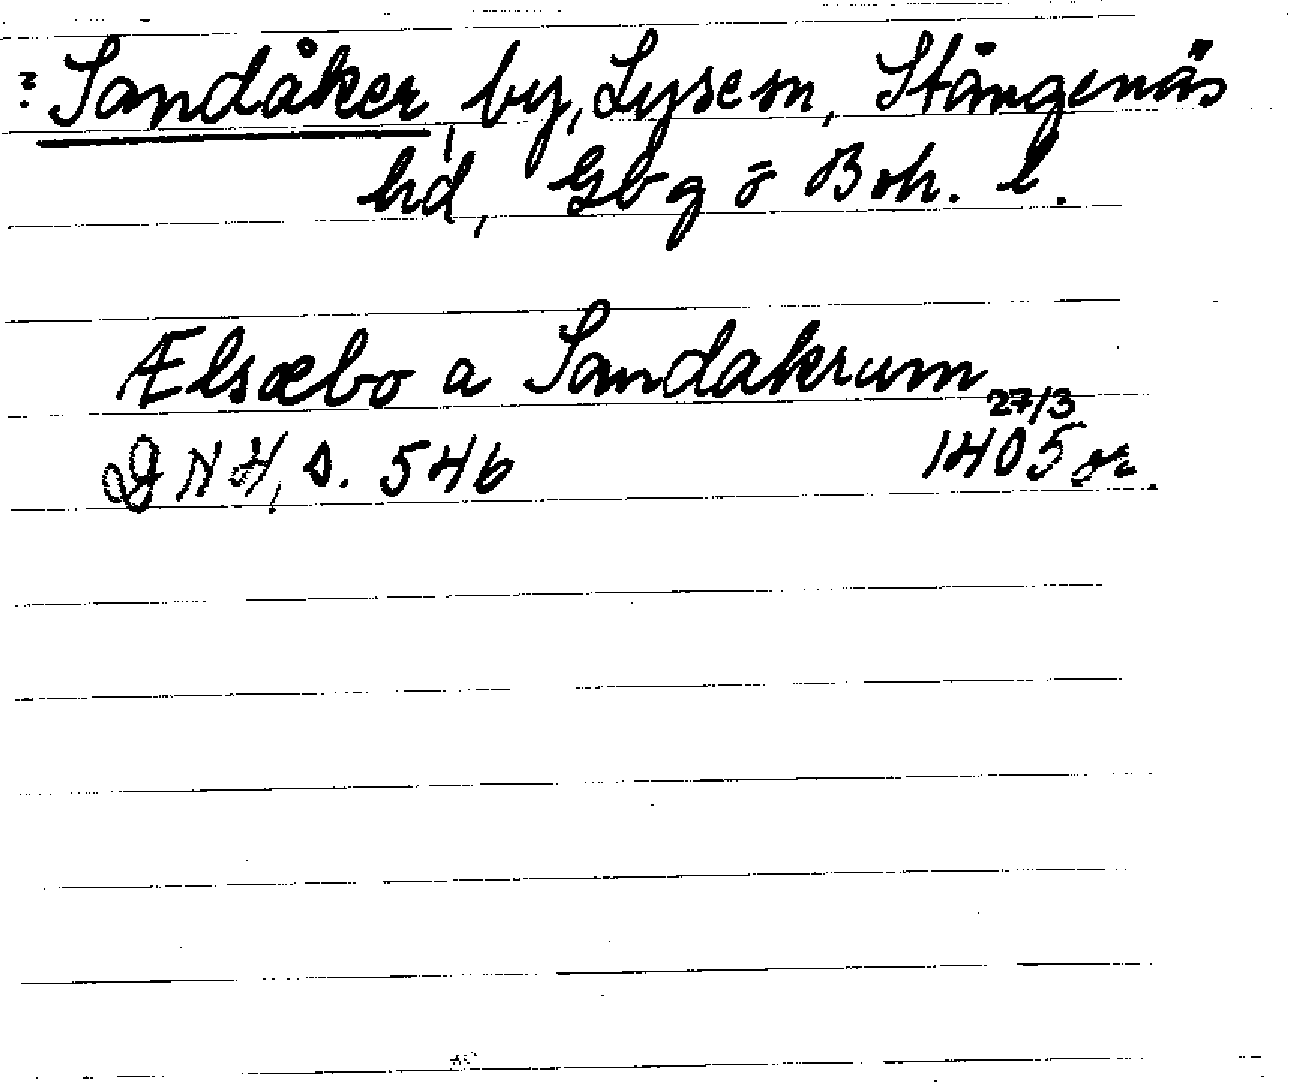 ?Sandåker by, Lyse sn, Stångenäs
hd, Gbg o Boh. l.
Ælsæbo a Sandakrum
27/3
DNH, s. 546 1405 or.